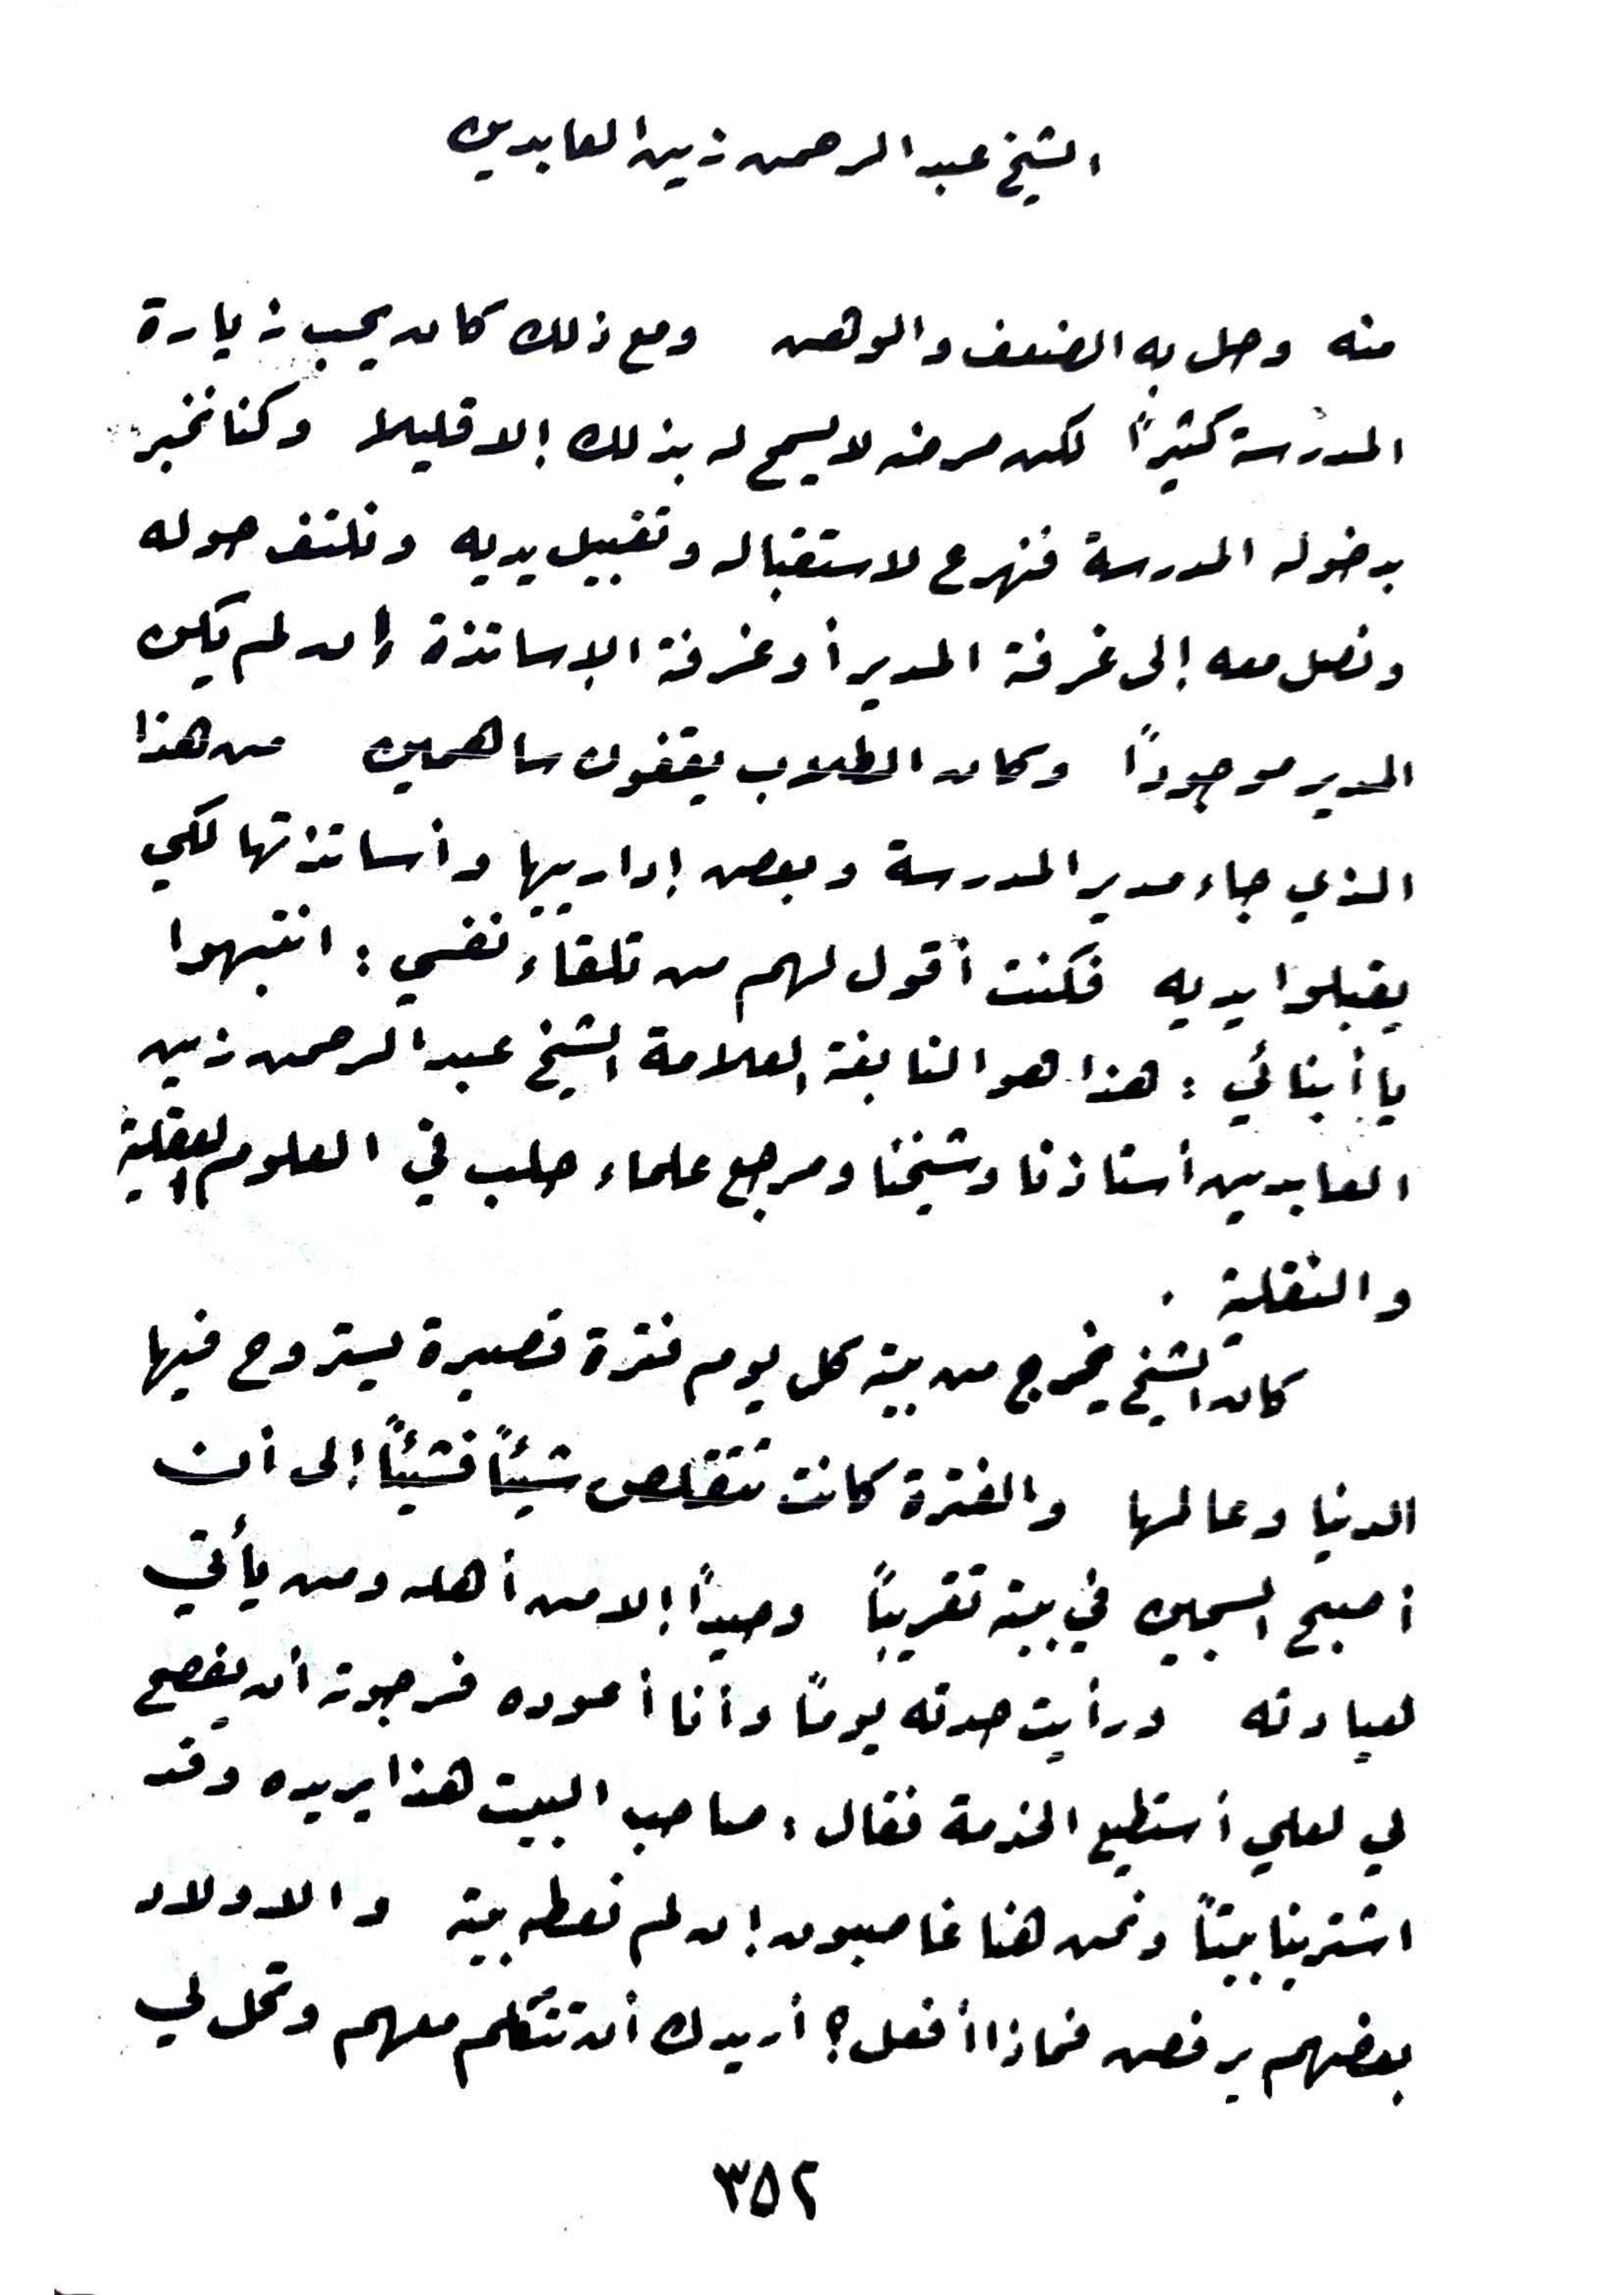 الشيخ عبد الرحمن زين العابدين
منه وحل به الضعف والوهن ومع ذلك كان يحب زيارة
المدرسة كثيراً لكن مرضه لا يسمح له بذلك إلا قليلا وكنا نخبر
بدخوله المدرسة فنهرع لاستقباله وتقبيل يديه ونلتف حوله
ونصل معه إلى غرفة المدير أو غرفة الاساتذة إن لم يكن
المدير موجوداً وكان الطلاب يقفون ساهمين من هذا
الذي جاء مدير المدرسة وبعض إدارييها وأساتذتها لكي
يقبلوا يديه فكنت أقول لهم من تلقاء نفسي : انتبهوا
يا أبنائي : هذا هو النابغة العلامة الشيخ عبد الرحمن زين
العابدين أستاذنا وشيخنا ومرجع علماء حلب في العلوم العقلية
والنقلية .
كان الشيخ يخرج من بيته كل يوم فترة قصيرة يستروح فيها
الدنيا وعالمها والفترة كانت تتقلص شيئاً فشيئاً إلى أن
أصبح السجين في بيته تقريباً وحيداً إلا من أهله ومن يأتي
لعيادته ورأيت حدته يوماً وأنا أعوده فرجوته أن يفصح
لي لعلي أستطيع الخدمة فقال : صاحب البيت هذا يريده وقد
اشترينا بيتاً ونحن هنا غاصبون إن لم نعطه بيته والاولاد
بعضهم يرفض فماذا أفعل ؟ أريدك أن تتكلم معهم وتحل لي
٣٥٢